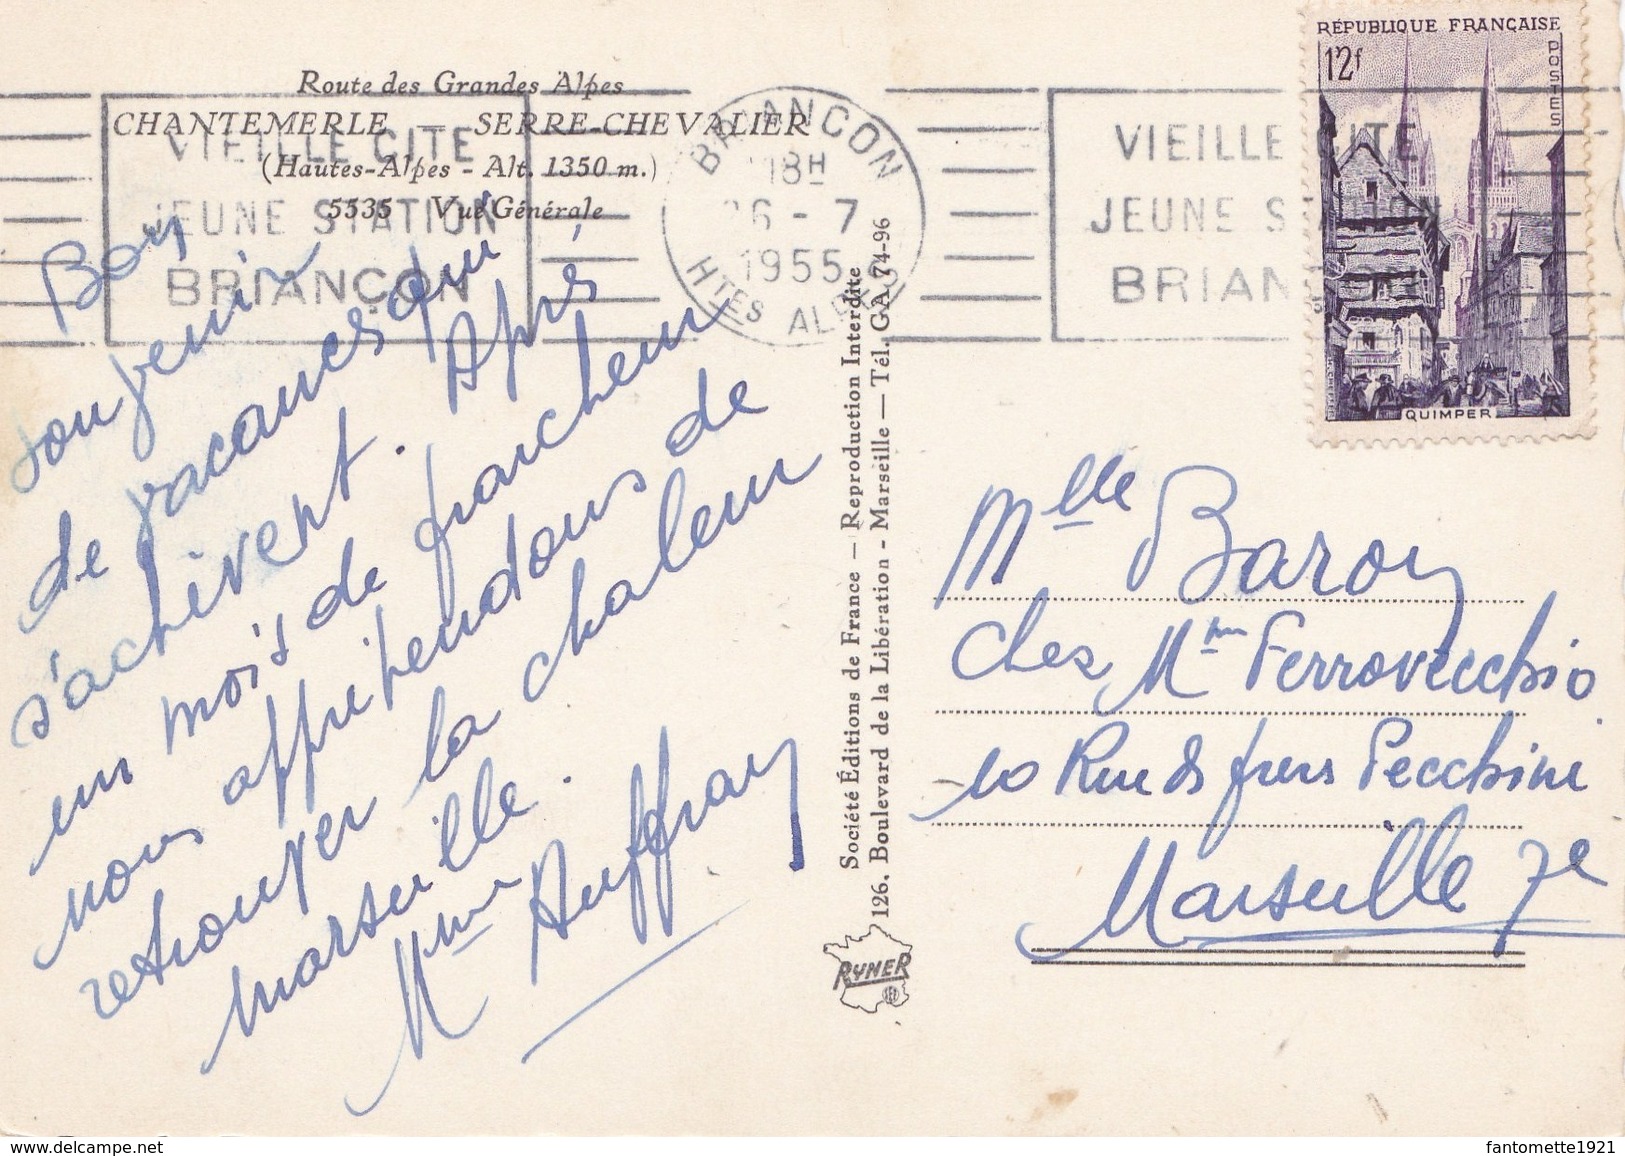 Route des Grandes Alpes
CHANTEMERLE — SERRE-CHEVALIER
(Hautes-Alpes - Alt. 1350 m.)
5535 Vue Générale
VIEILLE CITE
JEUNE STATION
BRIANÇON
BRIANCON
18H
26 - 7
1955
HTES ALPES
VIEILLE CITE
JEUNE STATION
BRIANÇON
RÉPUBLIQUE FRANÇAISE
12f
POSTES
QUIMPER
Bon
souvenir
de vacances qui
s'achèvent. Après
un mois de fraicheur
nous appréhendons de
retrouver la chaleur
marseille.
Mme Auffray
Société Éditions de France — Reproduction Interdite
126, Boulevard de la Libération - Marseille — Tél. GA 74-96
RYNER
Mlle Baron
chez Mme Ferrovecchio
10 Rue des frères Pecchini
Marseille 7e
delcampe.net
fantomette1921